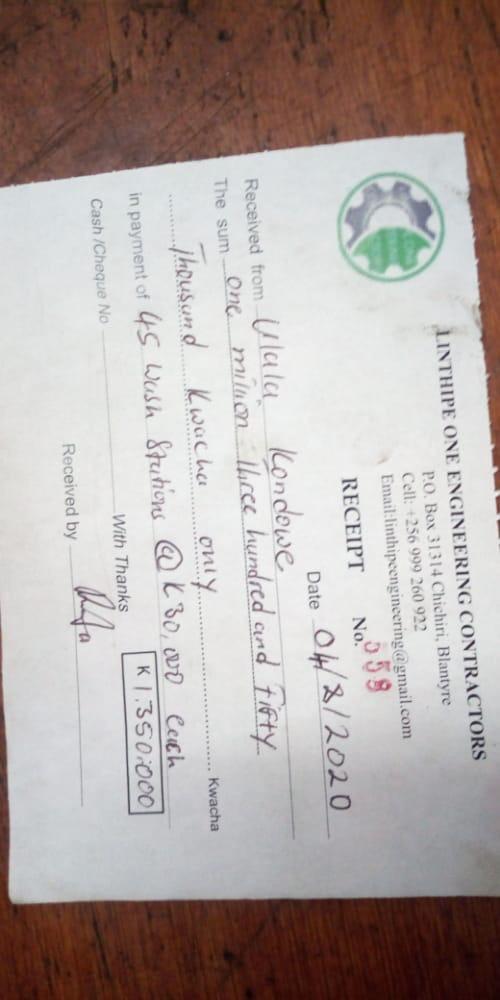 LINTHIPE ONE ENGINEERING CONTRACTORS
P.O. Box 31314 Chichiri, Blantyre
Cell: +256 999 260 922
Email:linthipeengineering@gmail.com
RECEIPT No. 059
Date 04/8/2020
Received from Ulala Kondowe
The sum one million Three hundred and Fifty
Thousand Kwacha only Kwacha
in payment of 45 Wash Stations @ K30,000 each
Cash /Cheque No With Thanks K1,350,000
Received by